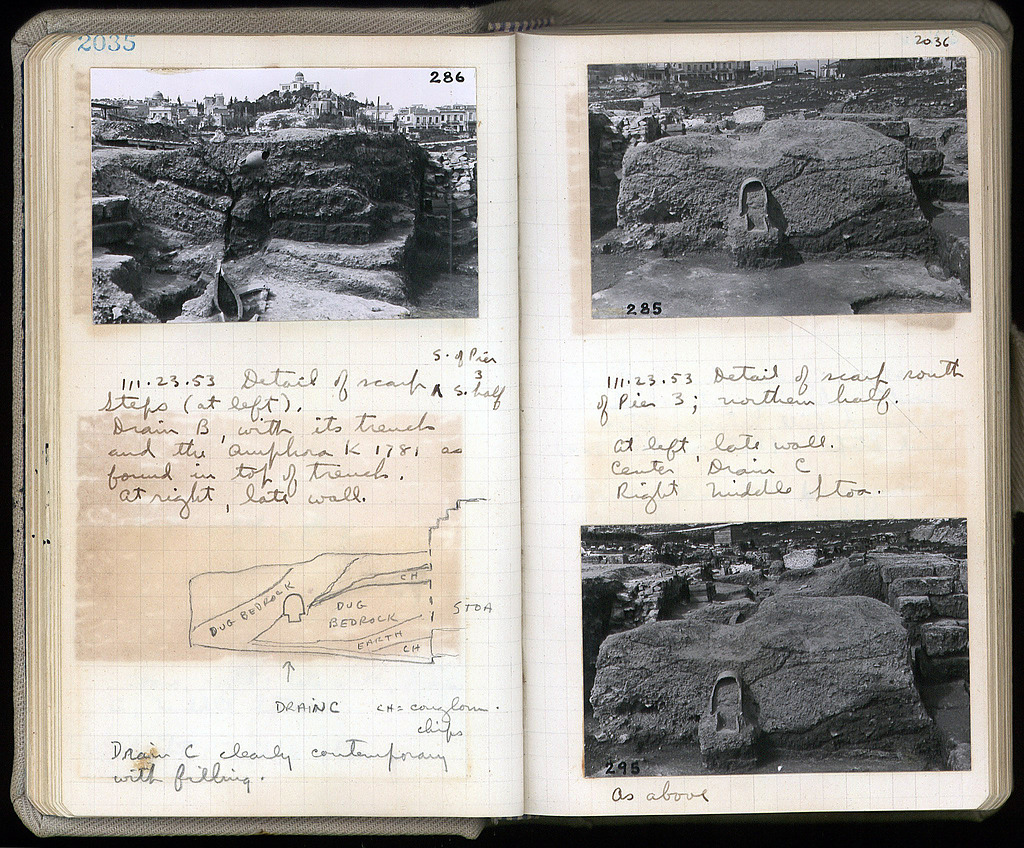 2035
286
S. of Pier
3
111.23.53 Detail of scarp ∧ S. half
Steps (at left).
Drain B, with its trench
and the amphora K 1781 as
found in top of trench.
At right, late wall.
CH
DUG BEDROCK
DUG
BEDROCK
STOA
EARTH
CH
↑
DRAIN C CH = conglom.
chips
Drain C clearly contemporary
with filling.
2036
285
111.23.53 Detail of scarp south
of Pier 3; northern half.
At left, late wall.
Center Drain C
Right Middle Stoa.
295
As above